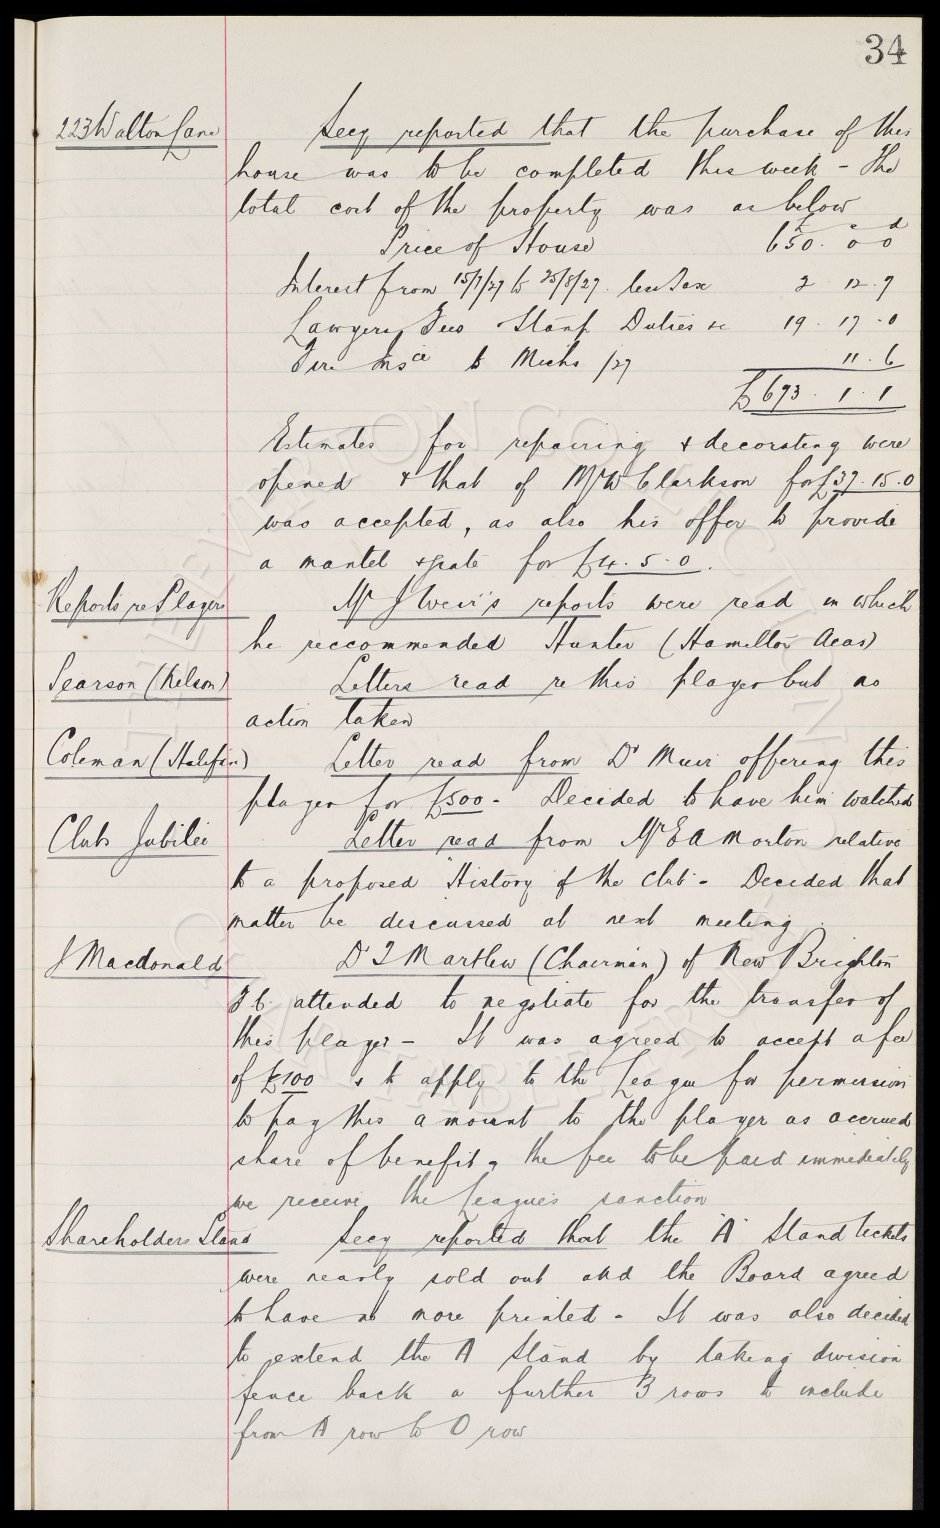 34
223 Walton Lane
Secy reported that the purchase of this
house was to be completed this week - The
total cost of the property was as below
£ s d
Price of House 650. 0 0
Interest from 15/7/27 to 25/8/27. less Tax 2. 12. 7
Lawyers Fees Stamp Duties &c 19. 17. 0
Fire Insce to Michs /27 11. 6
£693. 1. 1
Estimates for repairing & decorating were
opened & that of Mr W Clarkson for £37. 15. 0
was accepted, as also his offer to provide
a mantel & grate for £4. 5. 0.
Reports re Players
Mr J Weir's reports were read in which
he reccommended Hunter (Hamilton Acas)
Searson (Kelson)
Letters read re this player but no
action taken
Coleman (Halifax)
Letter read from Dr Muir offering this
player for £500 - Decided to have him watched
Club Jubilee
Letter read from Mr E A Morton relative
to a proposed "History of the Club - Decided that
matter be discussed at next meeting.
J Macdonald
Dr T Martlew (Chairman) of New Brighton
F C. attended to negotiate for the transfer of
this player - It was agreed to accept a fee
of £100 & to apply to the League for permission
to pay this amount to the player as accrued
share of benefit, the fee to be paid immediately
we receive the League's sanction
Shareholders Stand
Secy reported that the "A" Stand tickets
were nearly sold out and the Board agreed
to have no more printed - It was also decided
to extend the A Stand by taking division
fence back a further 3 rows to include
from A row to O row
THE EVERTON COLLECTION CHARITABLE TRUST